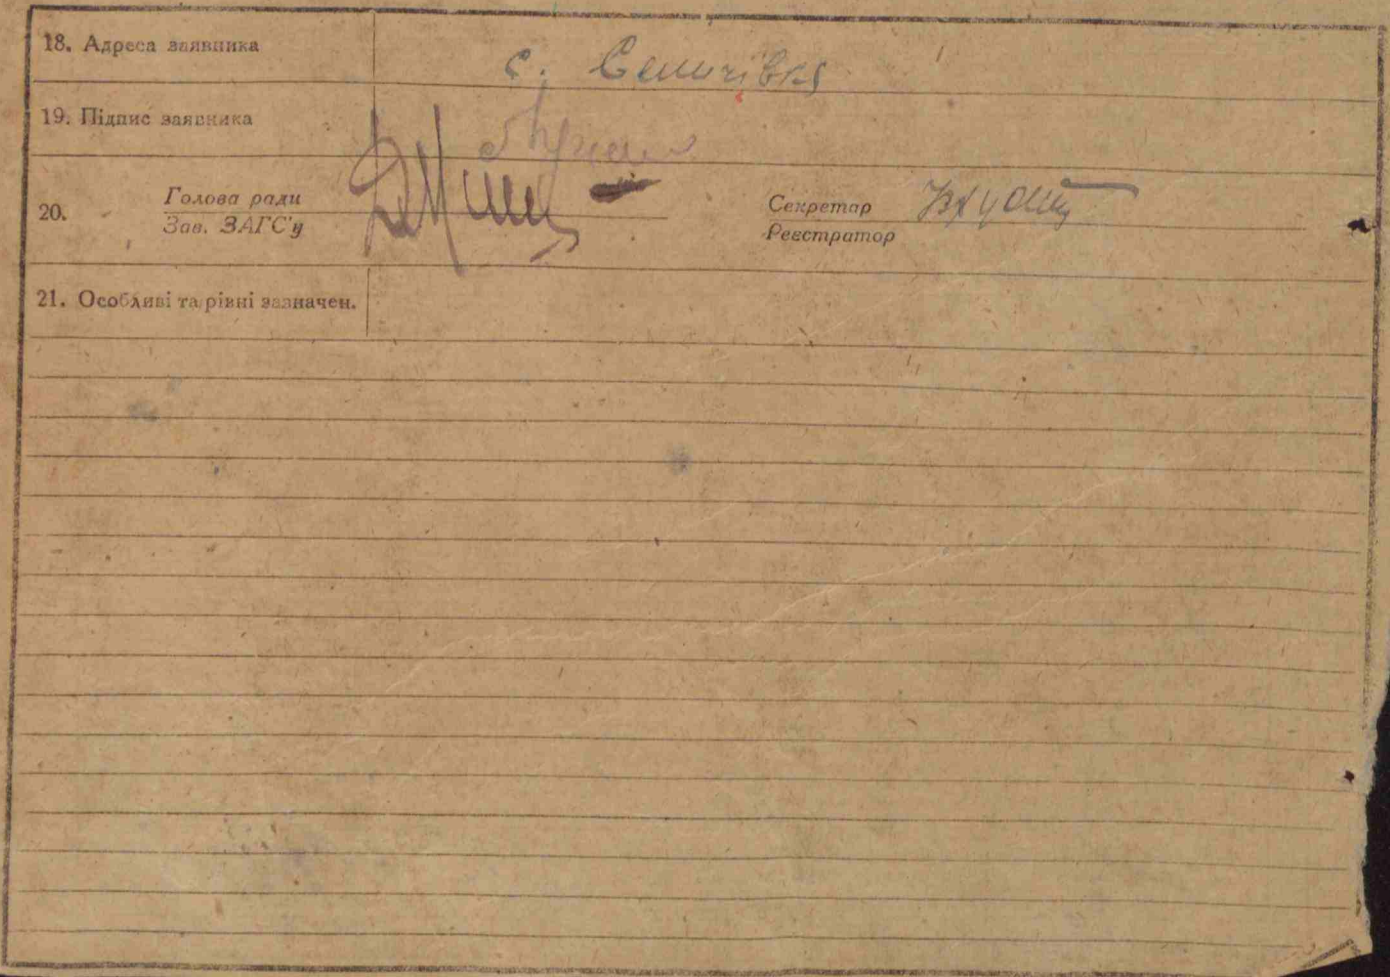 18. Адреса заявника
с.
19. Підпис заявника
20. Голова ради
Зав. ЗАГС'у
Секретар
Реєстратор
21. Особливі та різні зазначен.